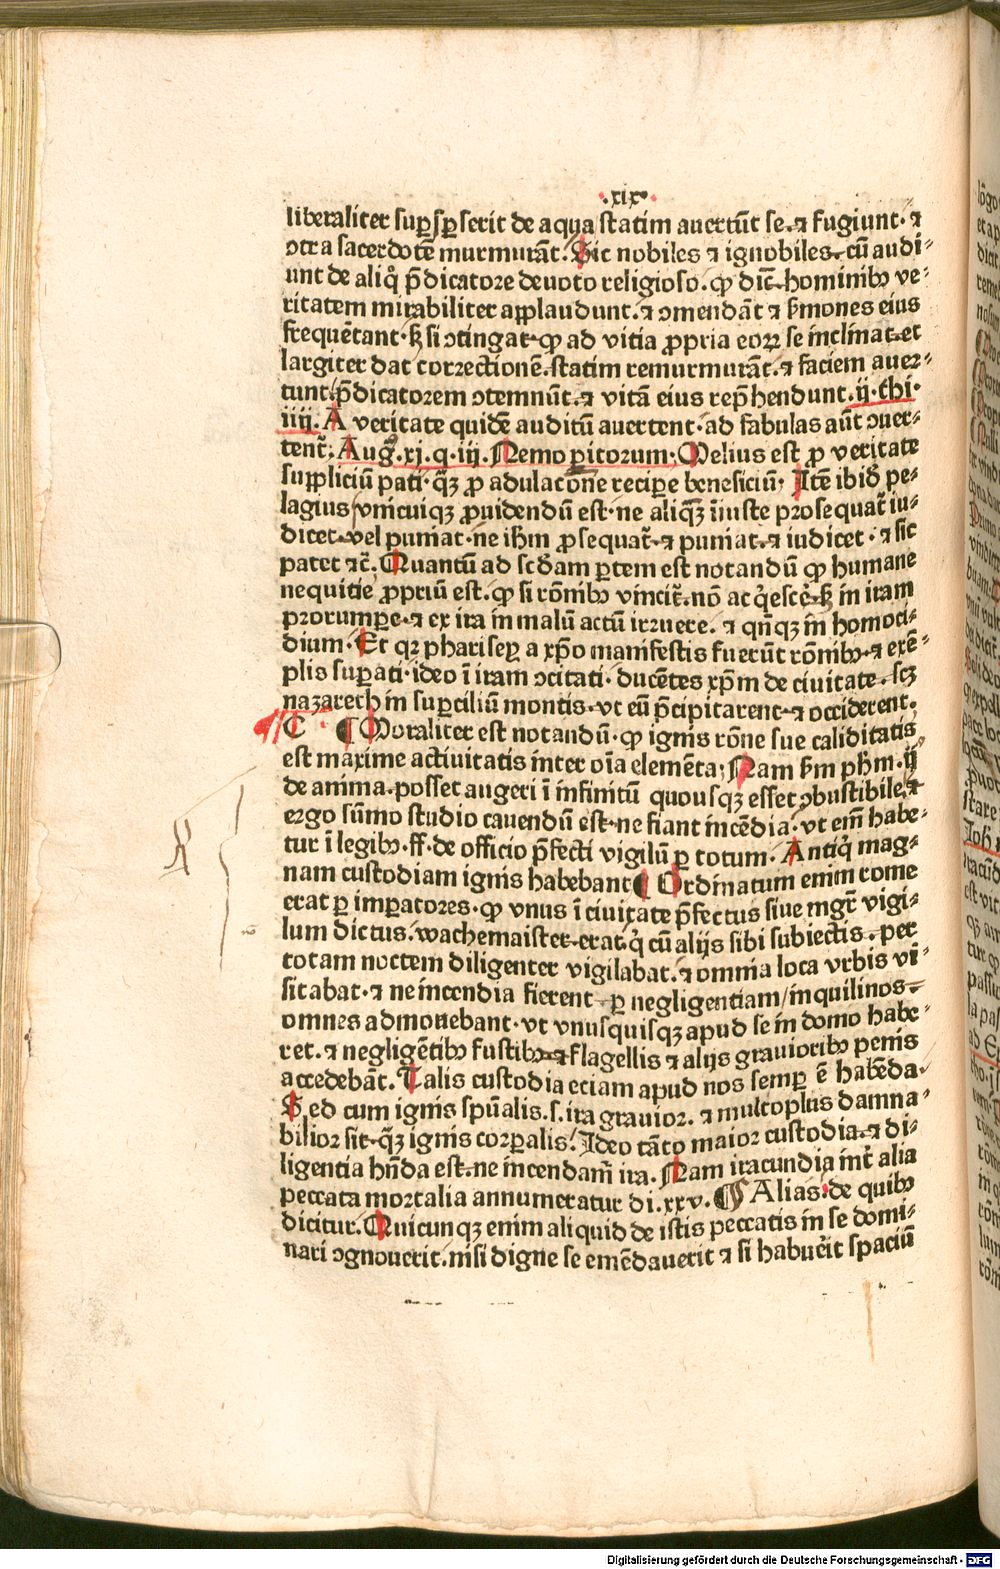 .xix.
liberaliter sup̱sp̱serit de aqua statim auertūt se. ⁊ fugiunt. ⁊
ↄtra sacerdotē murmurāt. Sic nobiles ⁊ ignobiles. cū audi⸗
unt de aliq̊ p̄dicatore deuoto religioso. ꝙ dic̄t hominibꝰ ve⸗
ritatem mirabiliter applaudunt. ⁊ ↄmendāt ⁊ ẜmones eius
frequētant. ß si ↄtingat. ꝙ ad vitia ꝓpria eoꝝ se inclinat. et
largiter dat correctionē. statim remurmurāt. ⁊ faciem auer⸗
tunt. p̄dicatorem ↄtemnūt. ⁊ vitā eius rep̄hendunt. ij. thi.
iiij. A veritate quidē auditū auertent. ad fabulas aūt ↄuer⸗
tent̄. Aug̊. xj. q. iij. Nemo ꝑitorum. Melius est ꝓ veritate
suppliciū pati. q̄ꝫ ꝓ adulatōne recipe beneficiū. Itē ibid̄ pe⸗
lagius vnicuiqꝫ ꝓuidendū est. ne aliq̄ꝫ īiuste prosequat̄ iu⸗
dicet. vel puniat. ne ih̄m ꝓsequat̄. ⁊ puniat. ⁊ iudicet. ⁊ sic
patet ⁊c̄. Quantū ad scd̄am ꝑtem est notandū ꝙ humane
nequitie ꝓpriū est. ꝙ si rōnibꝰ vincit̄. nō acq̇escē. ß in iram
prorumpe. ⁊ ex ira in malū actū irruere. ⁊ qn̄qꝫ in homoci⸗
dium. Et qꝛ pharisey a xp̄o manifestis fuerūt rōnibꝰ. ⁊ exē⸗
plis suꝑati. ideo ī iram ↄcitati. ducētes xp̄m de ciuitate. scꝫ
nazareth in suꝑciliū montis. vt eū p̄cipitarent. ⁊ occiderent.
C ¶ Moraliter est notandū. ꝙ ignis rōne sue caliditatis
est maxime actiuitatis inter oīa elemēta; Nam ẜm ph̄m. ij
de anima. posset augeri ī infinitū quousqꝫ esset ↄbustibile, ⁊
ergo sūmo studio cauendū est. ne fiant incēdia. vt eni̅ habe⸗
tur ī legibꝰ. ff. de officio p̄fecti vigilū ꝑ totum. Antiq̇ mag⸗
nam custodiam ignis habebant ¶ Ordinatum enim rome
erat ꝑ imꝑatores. ꝙ vnus ī ciuitate p̄fectus siue mgr̄ vigi⸗
lum dictus. wachemaister. erat. q̇ cū alijs sibi subiectis. per
totam noctem diligenter vigilabat. ⁊ omnia loca vrbis vi⸗
sitabat. ⁊ ne incendia fierent ꝑ negligentiam/ inquilinos
omnes admonebant. vt vnusquisqꝫ apud se in domo habe⸗
ret. ⁊ negligētibꝰ fustibꝰ ⁊ flagellis ⁊ alijs grauioribꝰ penis
accedebāt. Talis custodia etiam apud nos semꝑ ē habēda.
Sed cum ignis spūalis. s. ira grauior. ⁊ multoplus damna⸗
bilior sit. q̄ꝫ ignis corꝑalis. Ideo tāto maior custodia. ⁊ di⸗
ligentia hn̄da est. ne incendam̄ ira. Nam iracundia int̄ alia
peccata mortalia annumeratur di. xxv. ¶ Alias. de quibꝰ
dicitur. Quicunqꝫ enim aliquid de istis peccatis in se domi⸗
nari ↄgnouerit. nisi digne se emēdauerit ⁊ si habuēit spaciū
Digitalisierung gefördert durch die Deutsche Forschungsgemeinschaft - DFG